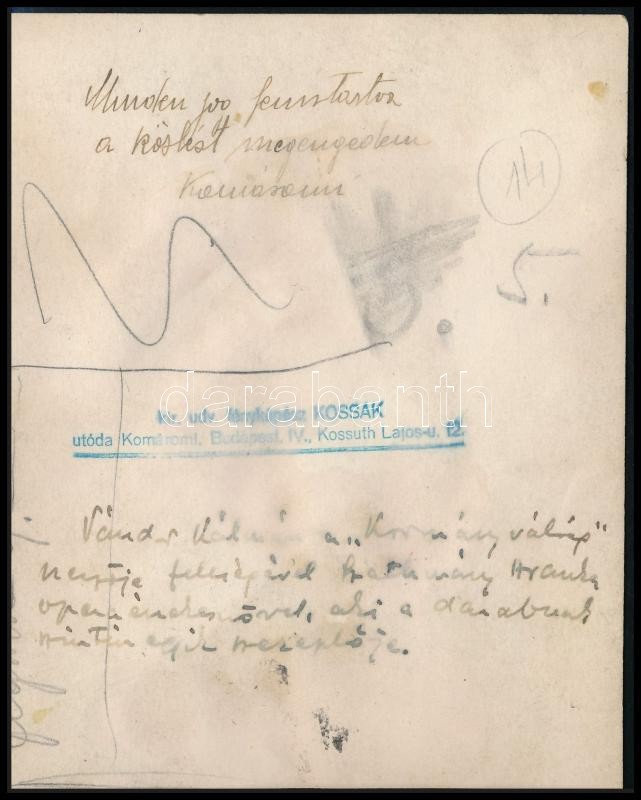 Minden jog fenntartva
a közlést megengedem
Komáromi
14
5.
darabanth
udv. fényképész KOSSAK
utóda Komáromi, Budapest, IV., Kossuth Lajos-u. 12.
Vándor Kálmán a „Kormányválság"
szerzője feleségével Hranka
operaénekesnővel, aki a darabnak
szintén egyik szereplője.